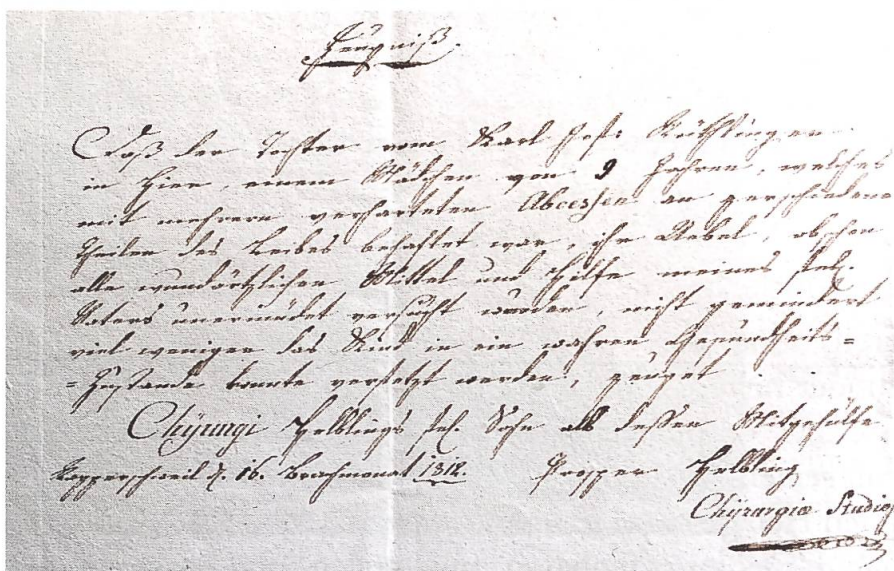 Zeugniß.
Daß der Tochter vom Karl Jos: Büchslinger
in hier, einem Mädchen von 9 Jahren, welches
mit mehrern verharteten Abcessen an verschiedene
Theilen des Leibes behaftet war, ihr Uebel, obschon
alle wundärztlichen Mittel und Hülfe meines sel.
Vaters unermüdet versucht wurden, nicht gemindert
viel weniger das Kind in ein wahren Gesundheits-
-Zustande konnte versetzt werden, zeuget
Chÿrurgi Helblings sel. Sohn als dessen Mitgehülfe
Rapperschweil d. 16. Brachmonat 1812. Prosper Helbling
Chÿrurgiæ Studios